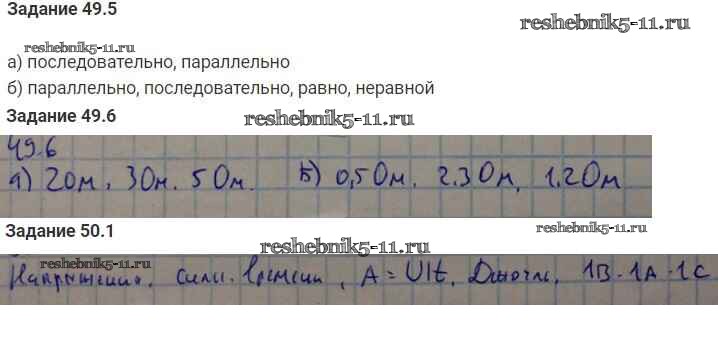 Задание 49.5
reshebnik5-11.ru
reshebnik5-11.ru
а) последовательно, параллельно
б) параллельно, последовательно, равно, неравной
Задание 49.6
reshebnik5-11.ru
49.6
а) 2 Ом, 3 Ом. 5 Ом. Б) 0,5 Ом, 2,3 Ом, 1,2 Ом
Задание 50.1
reshebnik5-11.ru
reshebnik5-11.ru
reshebnik5-11.ru
Напряжения, силы. времени, A = UIt, Джоуль, 1В·1А·1С